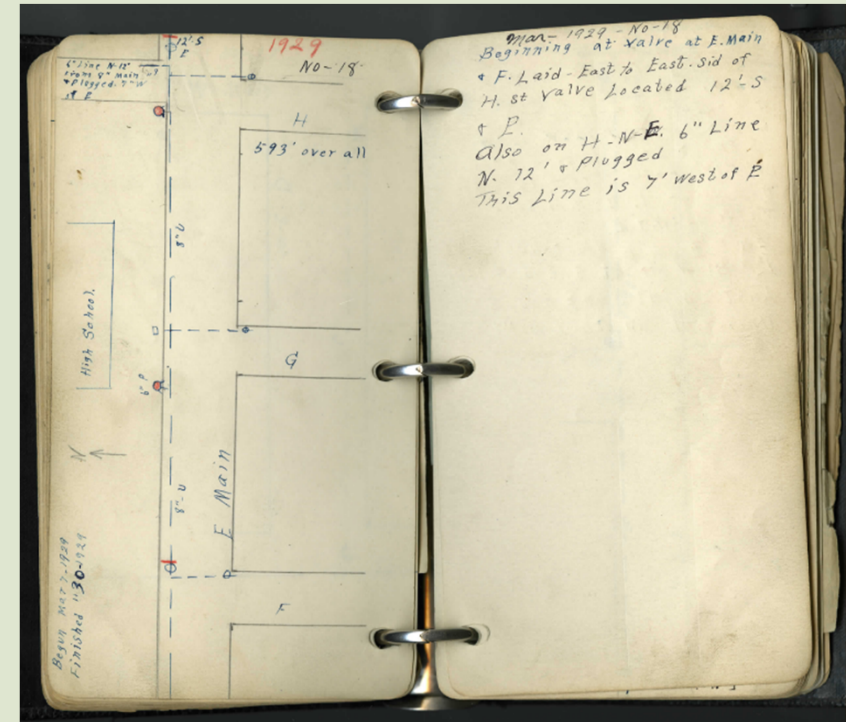 12'-S
E
1929
No-18
6" Line N-12'
from 8" Main
& Plugged. 7' W
of E
H
593' over all
8"-U
High School.
G
6" P
N
E Main
8"-U
F
Begun Mar 7-1929
Finished "30-1929
Mar- 1929 - No-18
Beginning at Valve at E. Main
& F. Laid - East to East. Sid of
H. st Valve Located 12'-S
& P.
Also on H-N-E. 6" Line
N. 12' & Plugged
This Line is 7' west of E